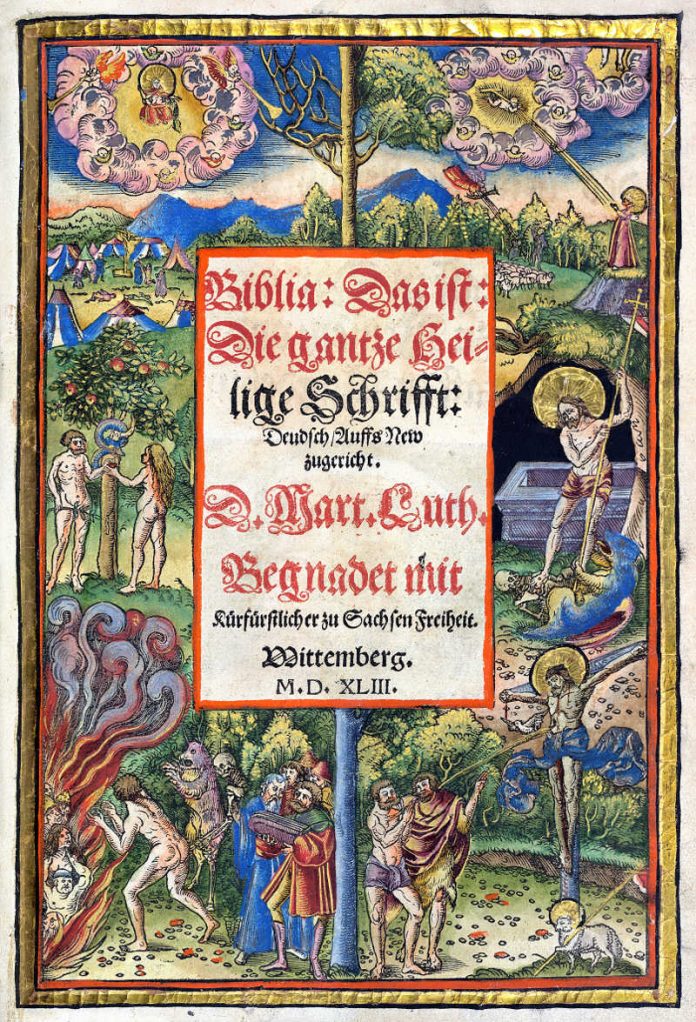 Biblia: Das ist:
Die gantze Hei-
lige Schrifft:
Deudsch/Auffs New
zugericht.
D. Mart. Luth.
Begnadet mit
Kürfürstlicher zu Sachsen Freiheit.
Wittemberg.
M. D. XLIII.